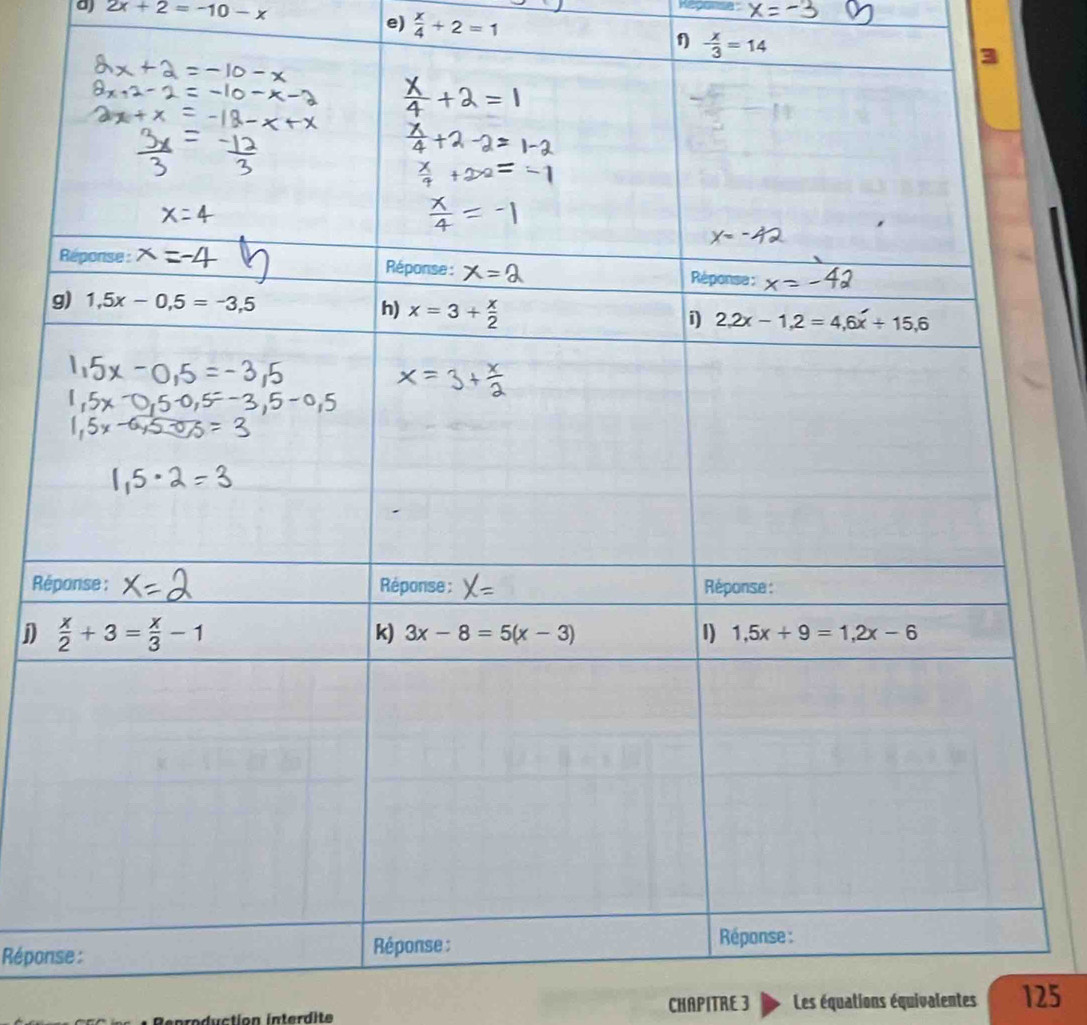 d) 2x + 2 = -10 - x
e) x/4 + 2 = 1
Réponse: x = -3
f) -x/3 = 14
3
2x + 2 = -10 - x
2x + 2 - 2 = -10 - x - 2
2x + x = -12 - x + x
3x/3 = -12/3
x = 4
x/4 + 2 = 1
x/4 + 2 - 2 = 1 - 2
x/4 = -1
x = -42
Réponse: x = -4
Réponse: x = 2
Réponse: x = -42
g) 1,5x - 0,5 = -3,5
h) x = 3 + x/2
i) 2,2x - 1,2 = 4,6x + 15,6
1,5x - 0,5 = -3,5
1,5x - 0,5 - 0,5 = -3,5 - 0,5
1,5x - 0,5 - 0,5 = 3
1,5 · 2 = 3
x = 3 + x/2
Réponse: x = 2
Réponse: x =
Réponse:
j) x/2 + 3 = x/3 - 1
k) 3x - 8 = 5(x - 3)
l) 1,5x + 9 = 1,2x - 6
Réponse:
Réponse:
Réponse:
CHAPITRE 3 Les équations équivalentes 125
Reproduction interdite